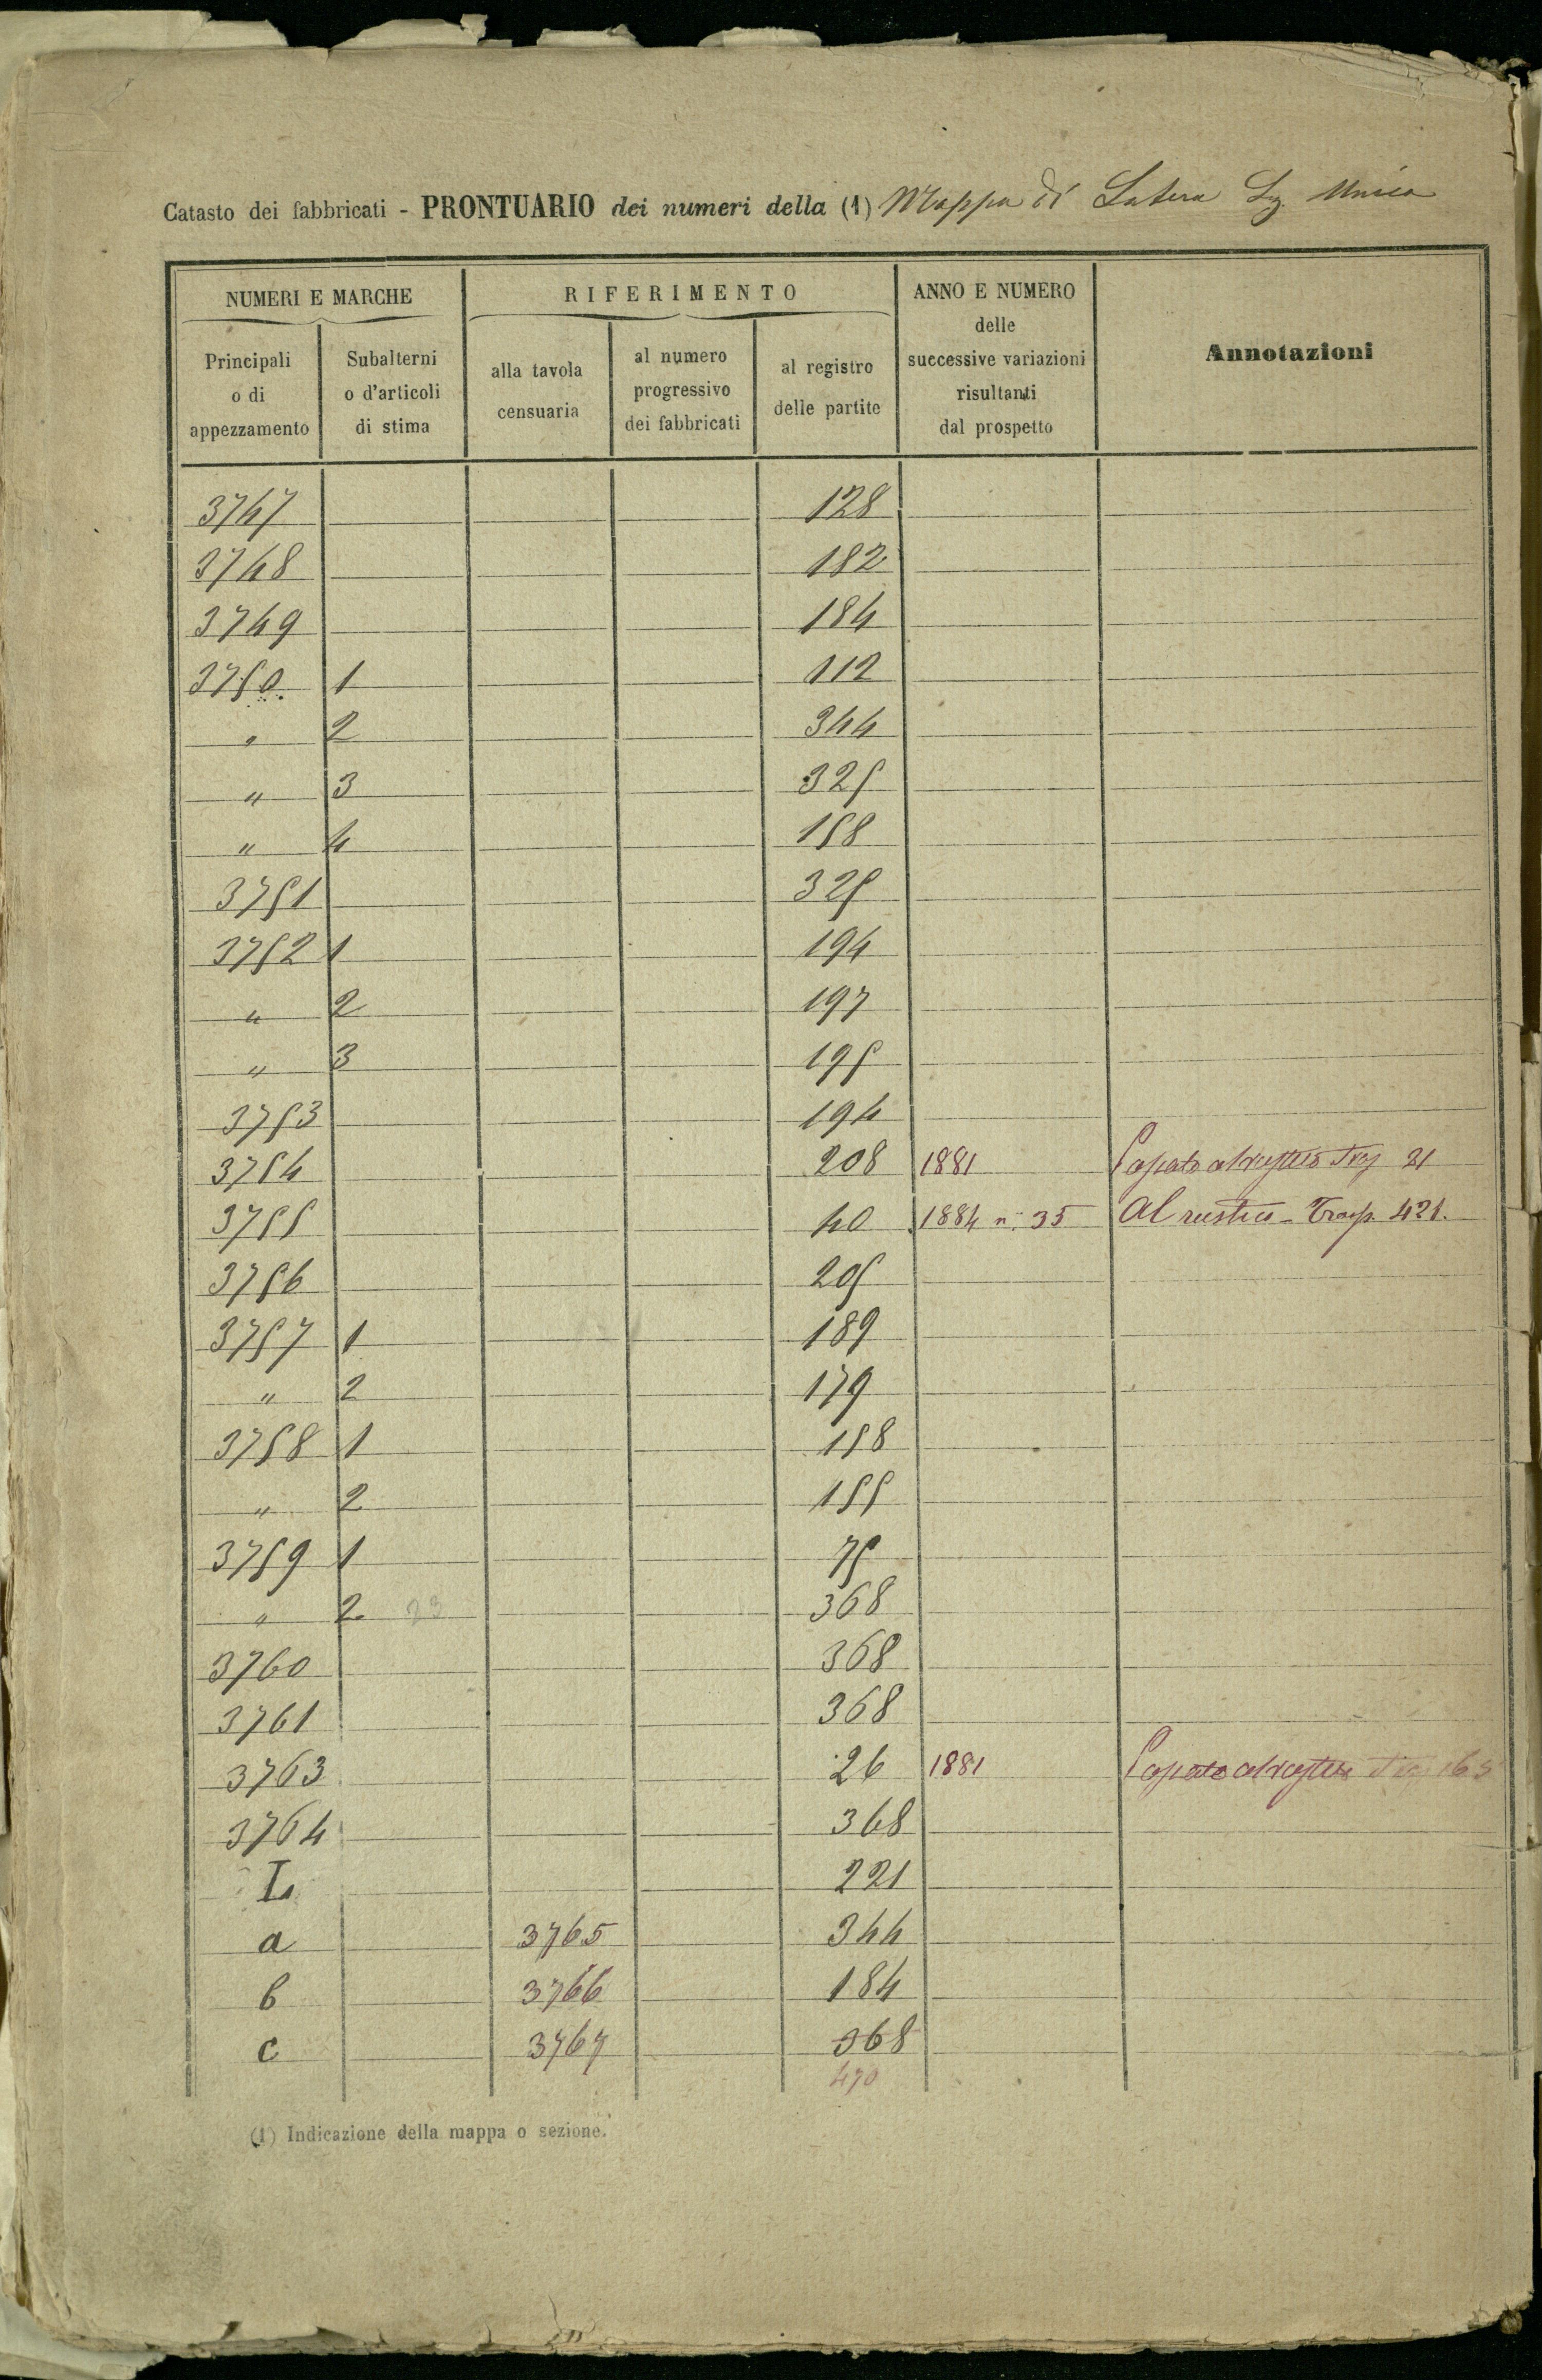 Catasto dei fabbricati - PRONTUARIO dei numeri della (1) Mappa di Latera Sez. Unica
NUMERI E MARCHE
RIFERIMENTO
ANNO E NUMERO
delle
successive variazioni
risultanti
dal prospetto
Annotazioni
Principali
o di
appezzamento
Subalterni
o d'articoli
di stima
alla tavola
censuaria
al numero
progressivo
dei fabbricati
al registro
delle partite
3747 128
3748 182
3749 184
3750 1 112
" 2 344
" 3 325
" 4 158
3751 325
3752 1 194
" 2 197
" 3 195
3753 194
3754 208 1881 21
3755 40 1884 n. 35 Al rustico - Trasp. 421.
3756 205
3757 1 189
" 2 179
3758 1 158
" 2 155
3759 1 75
" 2 23 368
3760 368
3761 368
3763 26 1881 165
3764 368
L 221
a 3765 344
b 3766 184
c 3767 368
470
(1) Indicazione della mappa o sezione.